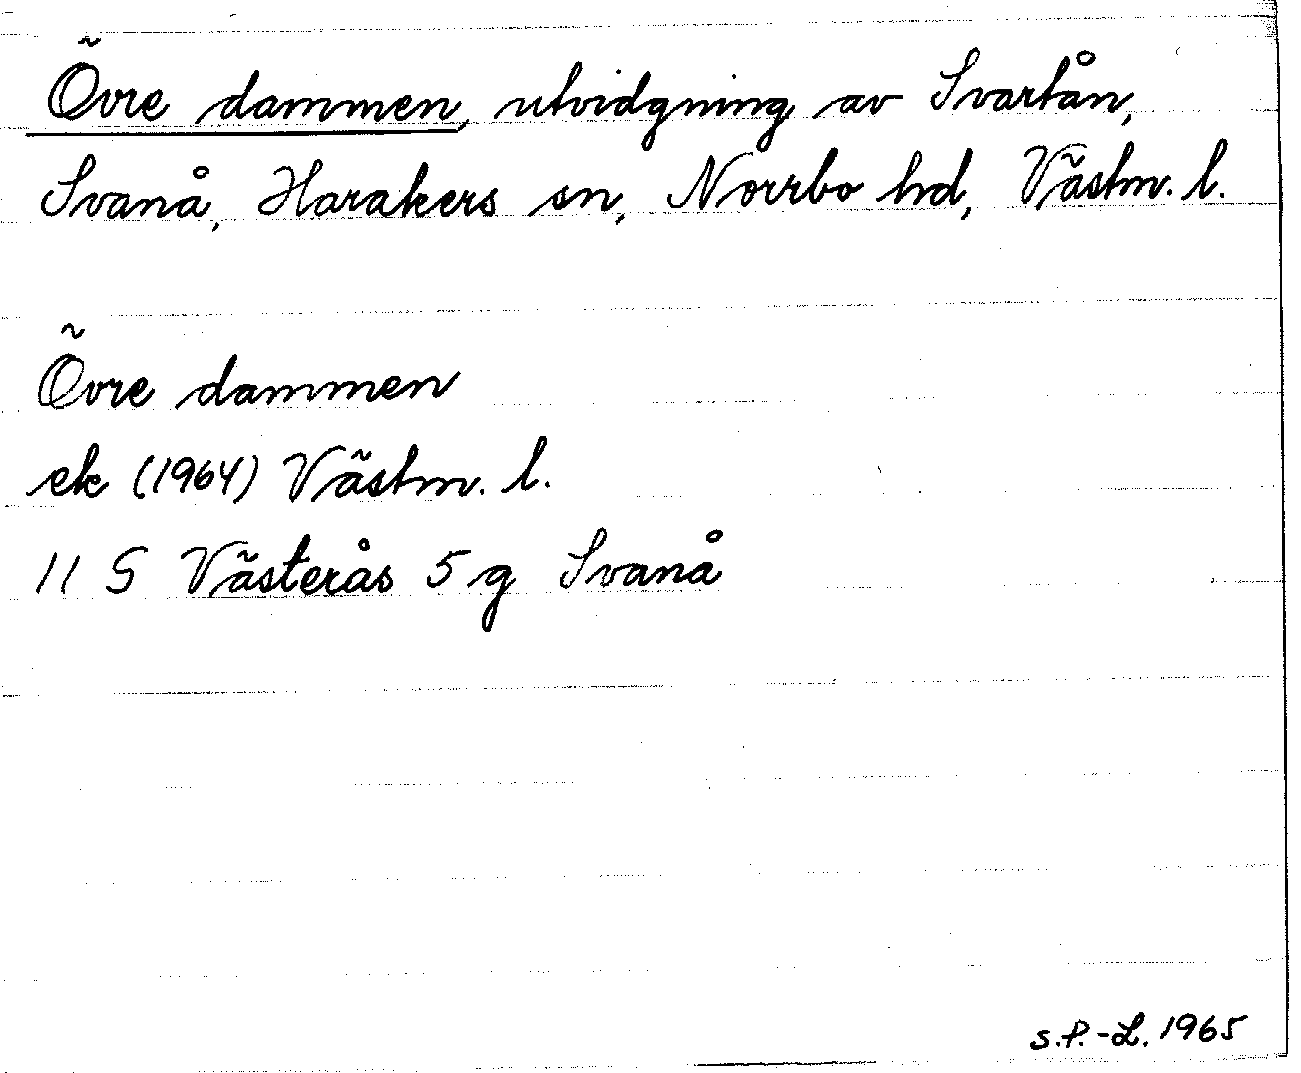 Övre dammen, utvidgning av Svartån,
Svanå, Harakers sn, Norrbo hd, Västm. l.
Övre dammen
ek (1964) Västm. l.
11 G Västerås 5 g Svanå
S.P.-L. 1965